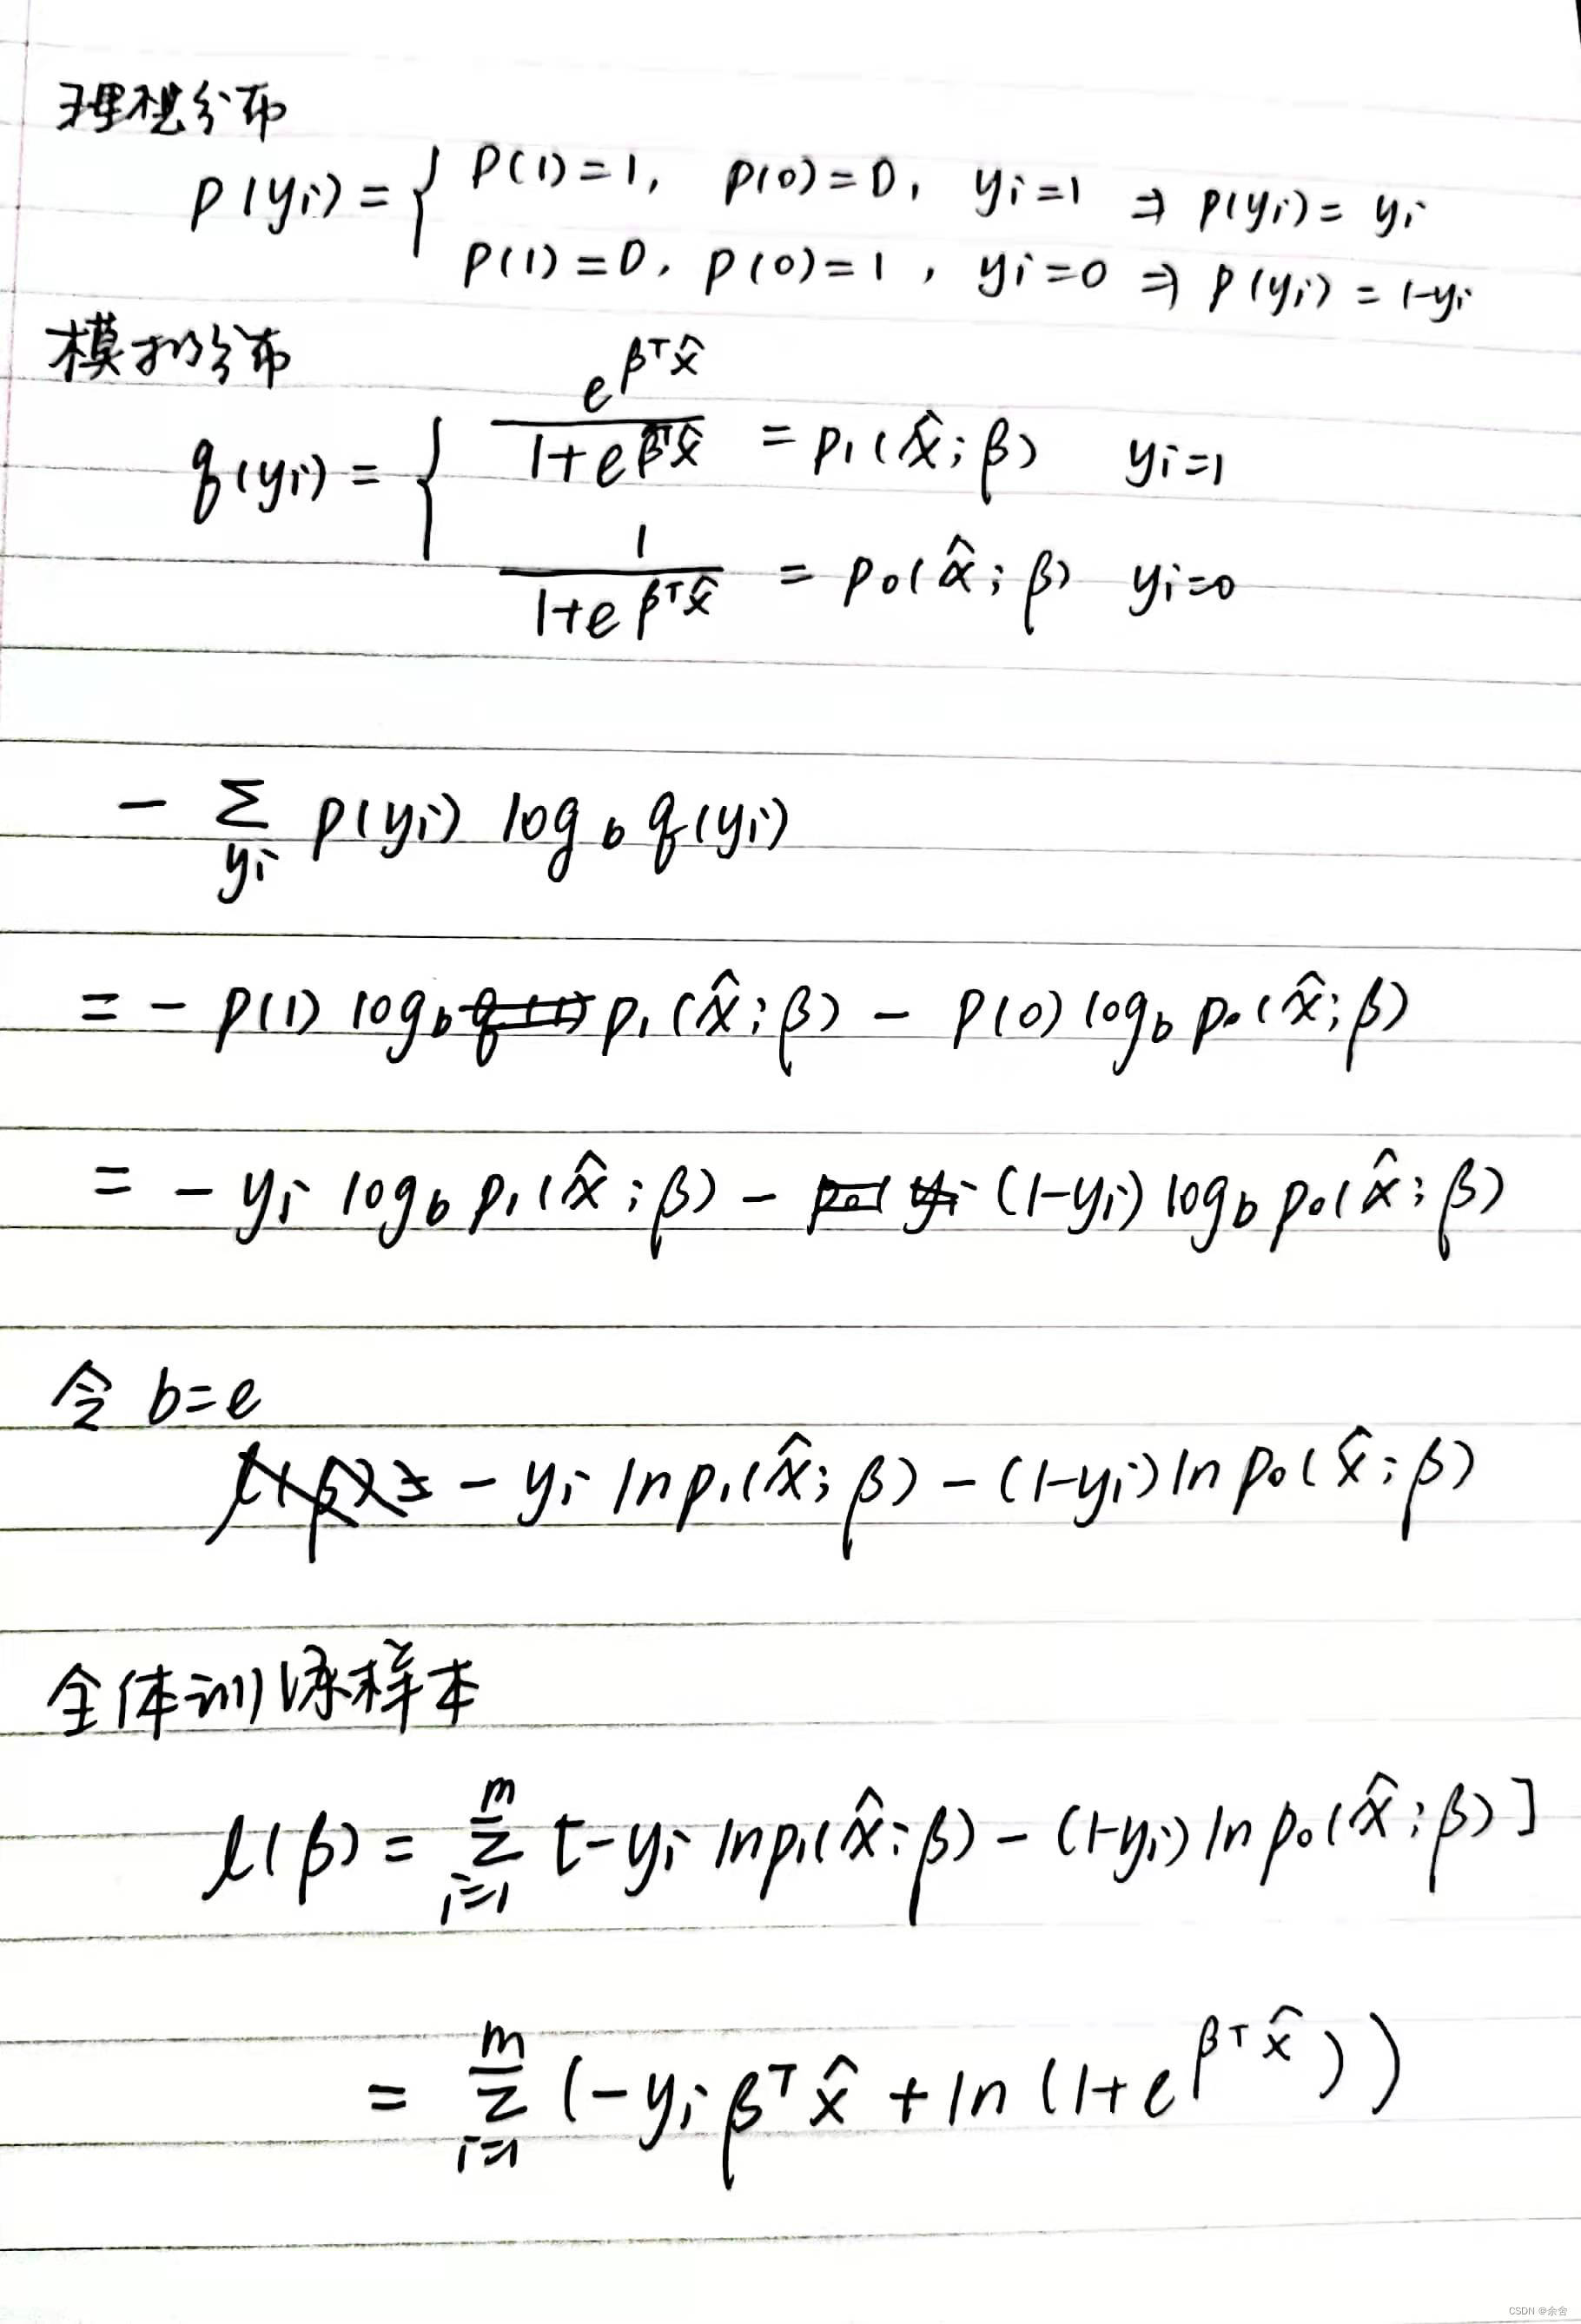 理想分布
p(yi) = { p(1)=1, p(0)=0, yi=1 ⇒ p(yi)=yi
p(1)=0, p(0)=1, yi=0 ⇒ p(yi)=1-yi
模拟分布
q(yi) = { e^{β^T x̂} / (1+e^{β^T x̂}) = p₁(x̂;β) yi=1
1 / (1+e^{β^T x̂}) = p₀(x̂;β) yi=0
- Σ_{yi} p(yi) log_b q(yi)
= - p(1) log_b p₁(x̂;β) - p(0) log_b p₀(x̂;β)
= - yi log_b p₁(x̂;β) - (1-yi) log_b p₀(x̂;β)
令 b=e
- yi ln p₁(x̂;β) - (1-yi) ln p₀(x̂;β)
全体训练样本
l(β) = Σ_{i=1}^{m} [-yi ln p₁(x̂;β) - (1-yi) ln p₀(x̂;β)]
= Σ_{i=1}^{m} (-yi β^T x̂ + ln(1+e^{β^T x̂}))
CSDN @余舍